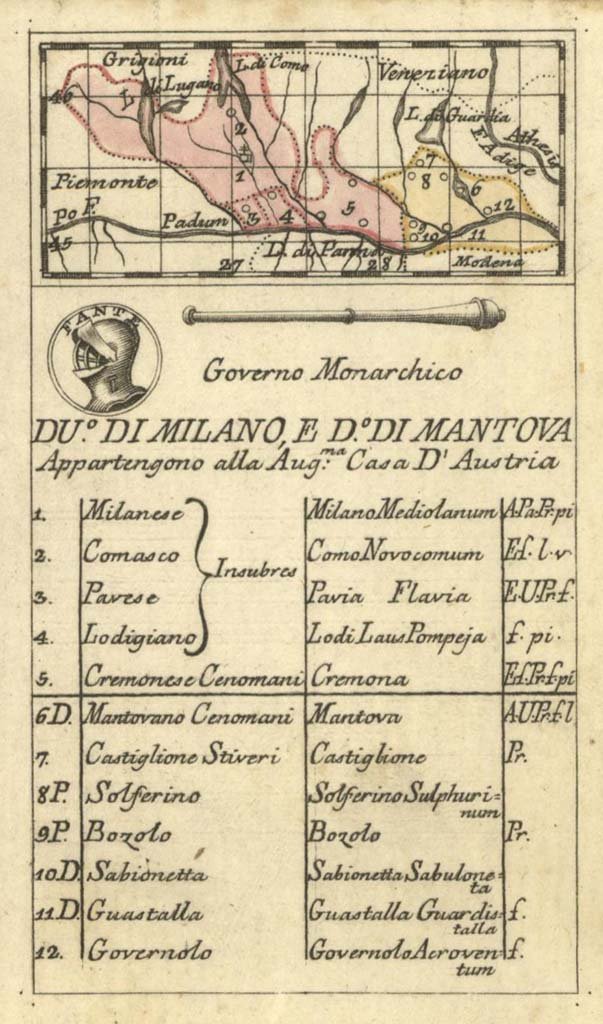 Grigioni
L. di Como
Veneziano
di Lugano
46
L. di Guardia
Athesis
F. Adige
2
7
1
8
6
Piemonte
5
12
Po F.
Padum
3
4
9
10
11
45
D. di Parma
27
28
Modena
FANTE
Governo Monarchico
DU.º DI MILANO, E D.º DI MANTOVA
Appartengono alla Aug.ma Casa D' Austria
1. Milanese Milano Mediolanum A.Pa.Pr.pi
2. Comasco Insubres Como Novocomum E.f. l. v.
3. Pavese Pavia Flavia E.U.Pr.f.
4. Lodigiano Lodi Laus Pompeja f. pi.
5. Cremonese Cenomani Cremona E.f.Pr.f.pi
6D. Mantovano Cenomani Mantova A.U.Pr.f.l
7. Castiglione Stiveri Castiglione Pr.
8P. Solferino Solferino Sulphuri=
num
9P. Bozolo Bozolo Pr.
10D. Sabionetta Sabionetta Sabulone=
ta
11D. Guastalla Guastalla Guardis= f.
talla
12. Governolo Governolo Acroven= f.
tum